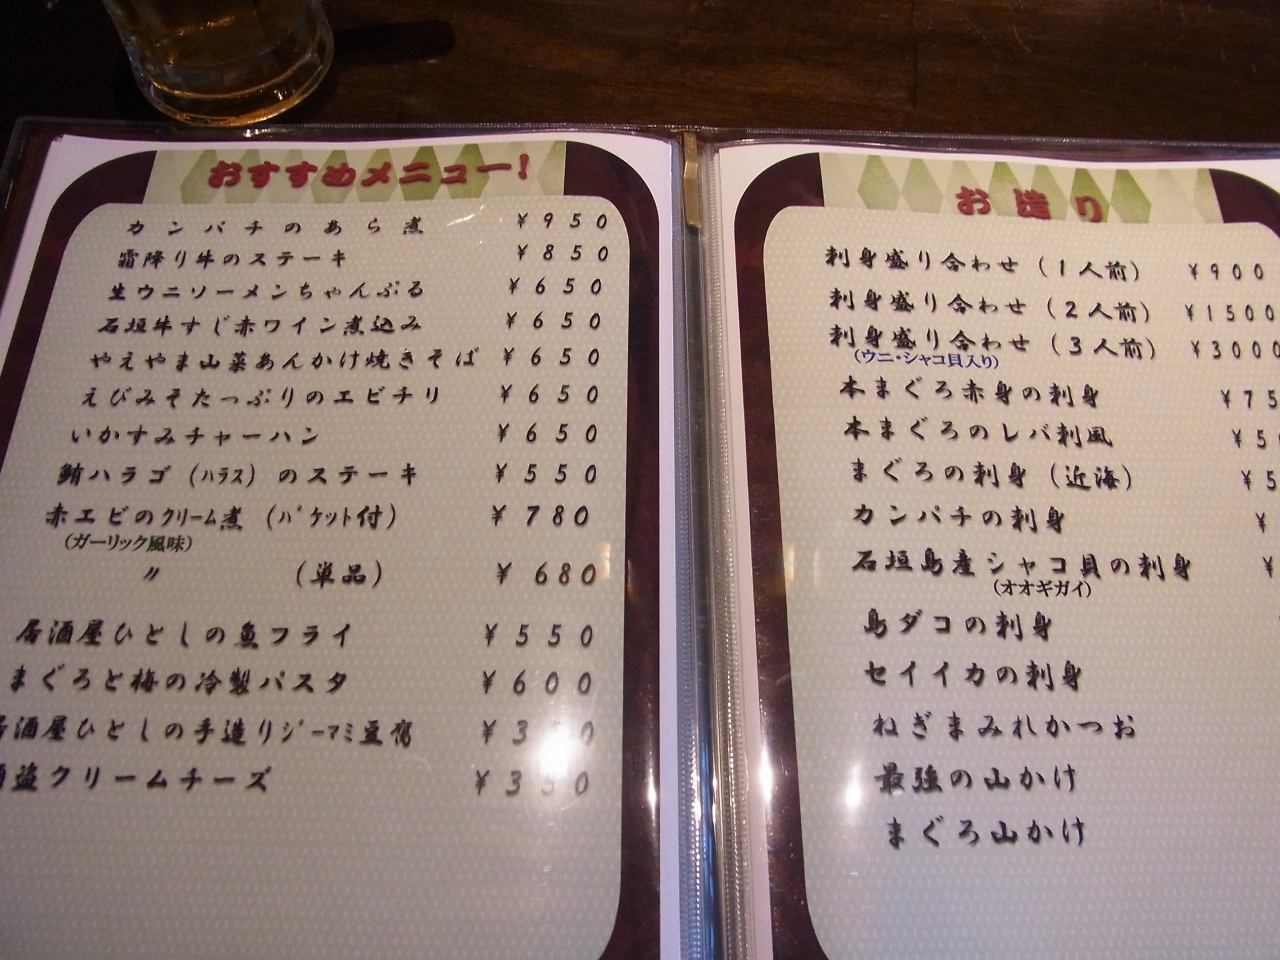 おすすめメニュー!
カンパチのあら煮 ¥950
霜降り牛のステーキ ¥850
生ウニソーメンちゃんぷる ¥650
石垣牛すじ赤ワイン煮込み ¥650
やえやま山菜あんかけ焼きそば ¥650
えびみそたっぷりのエビチリ ¥650
いかすみチャーハン ¥650
鮪ハラゴ(ハラス)のステーキ ¥550
赤エビのクリーム煮(バケット付) ¥780
(ガーリック風味)
〃 (単品) ¥680
居酒屋ひとしの魚フライ ¥550
まぐろと梅の冷製パスタ ¥600
居酒屋ひとしの手造りジーマミ豆腐
酒盗クリームチーズ ¥350
お造り
刺身盛り合わせ(1人前) ¥900
刺身盛り合わせ(2人前) ¥1500
刺身盛り合わせ(3人前) ¥3000
(ウニ・シャコ貝入り)
本まぐろ赤身の刺身 ¥75
本まぐろのレバ刺風 ¥5
まぐろの刺身(近海) ¥5
カンパチの刺身 ¥
石垣島産シャコ貝の刺身 ¥
(オオギガイ)
島ダコの刺身
セイイカの刺身
ねぎまみれかつお
最強の山かけ
まぐろ山かけ